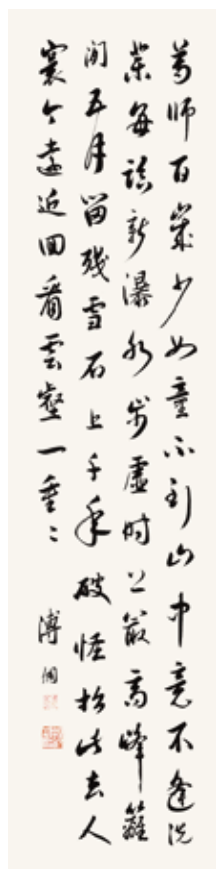 尊師百歲少如童不到山中竟不逢洗
藥每臨新瀑水步虛時上最高峰籬
間五月留殘雪石上千年破怪松此去人
寰今遠近回看雲壑一重〻
溥侗